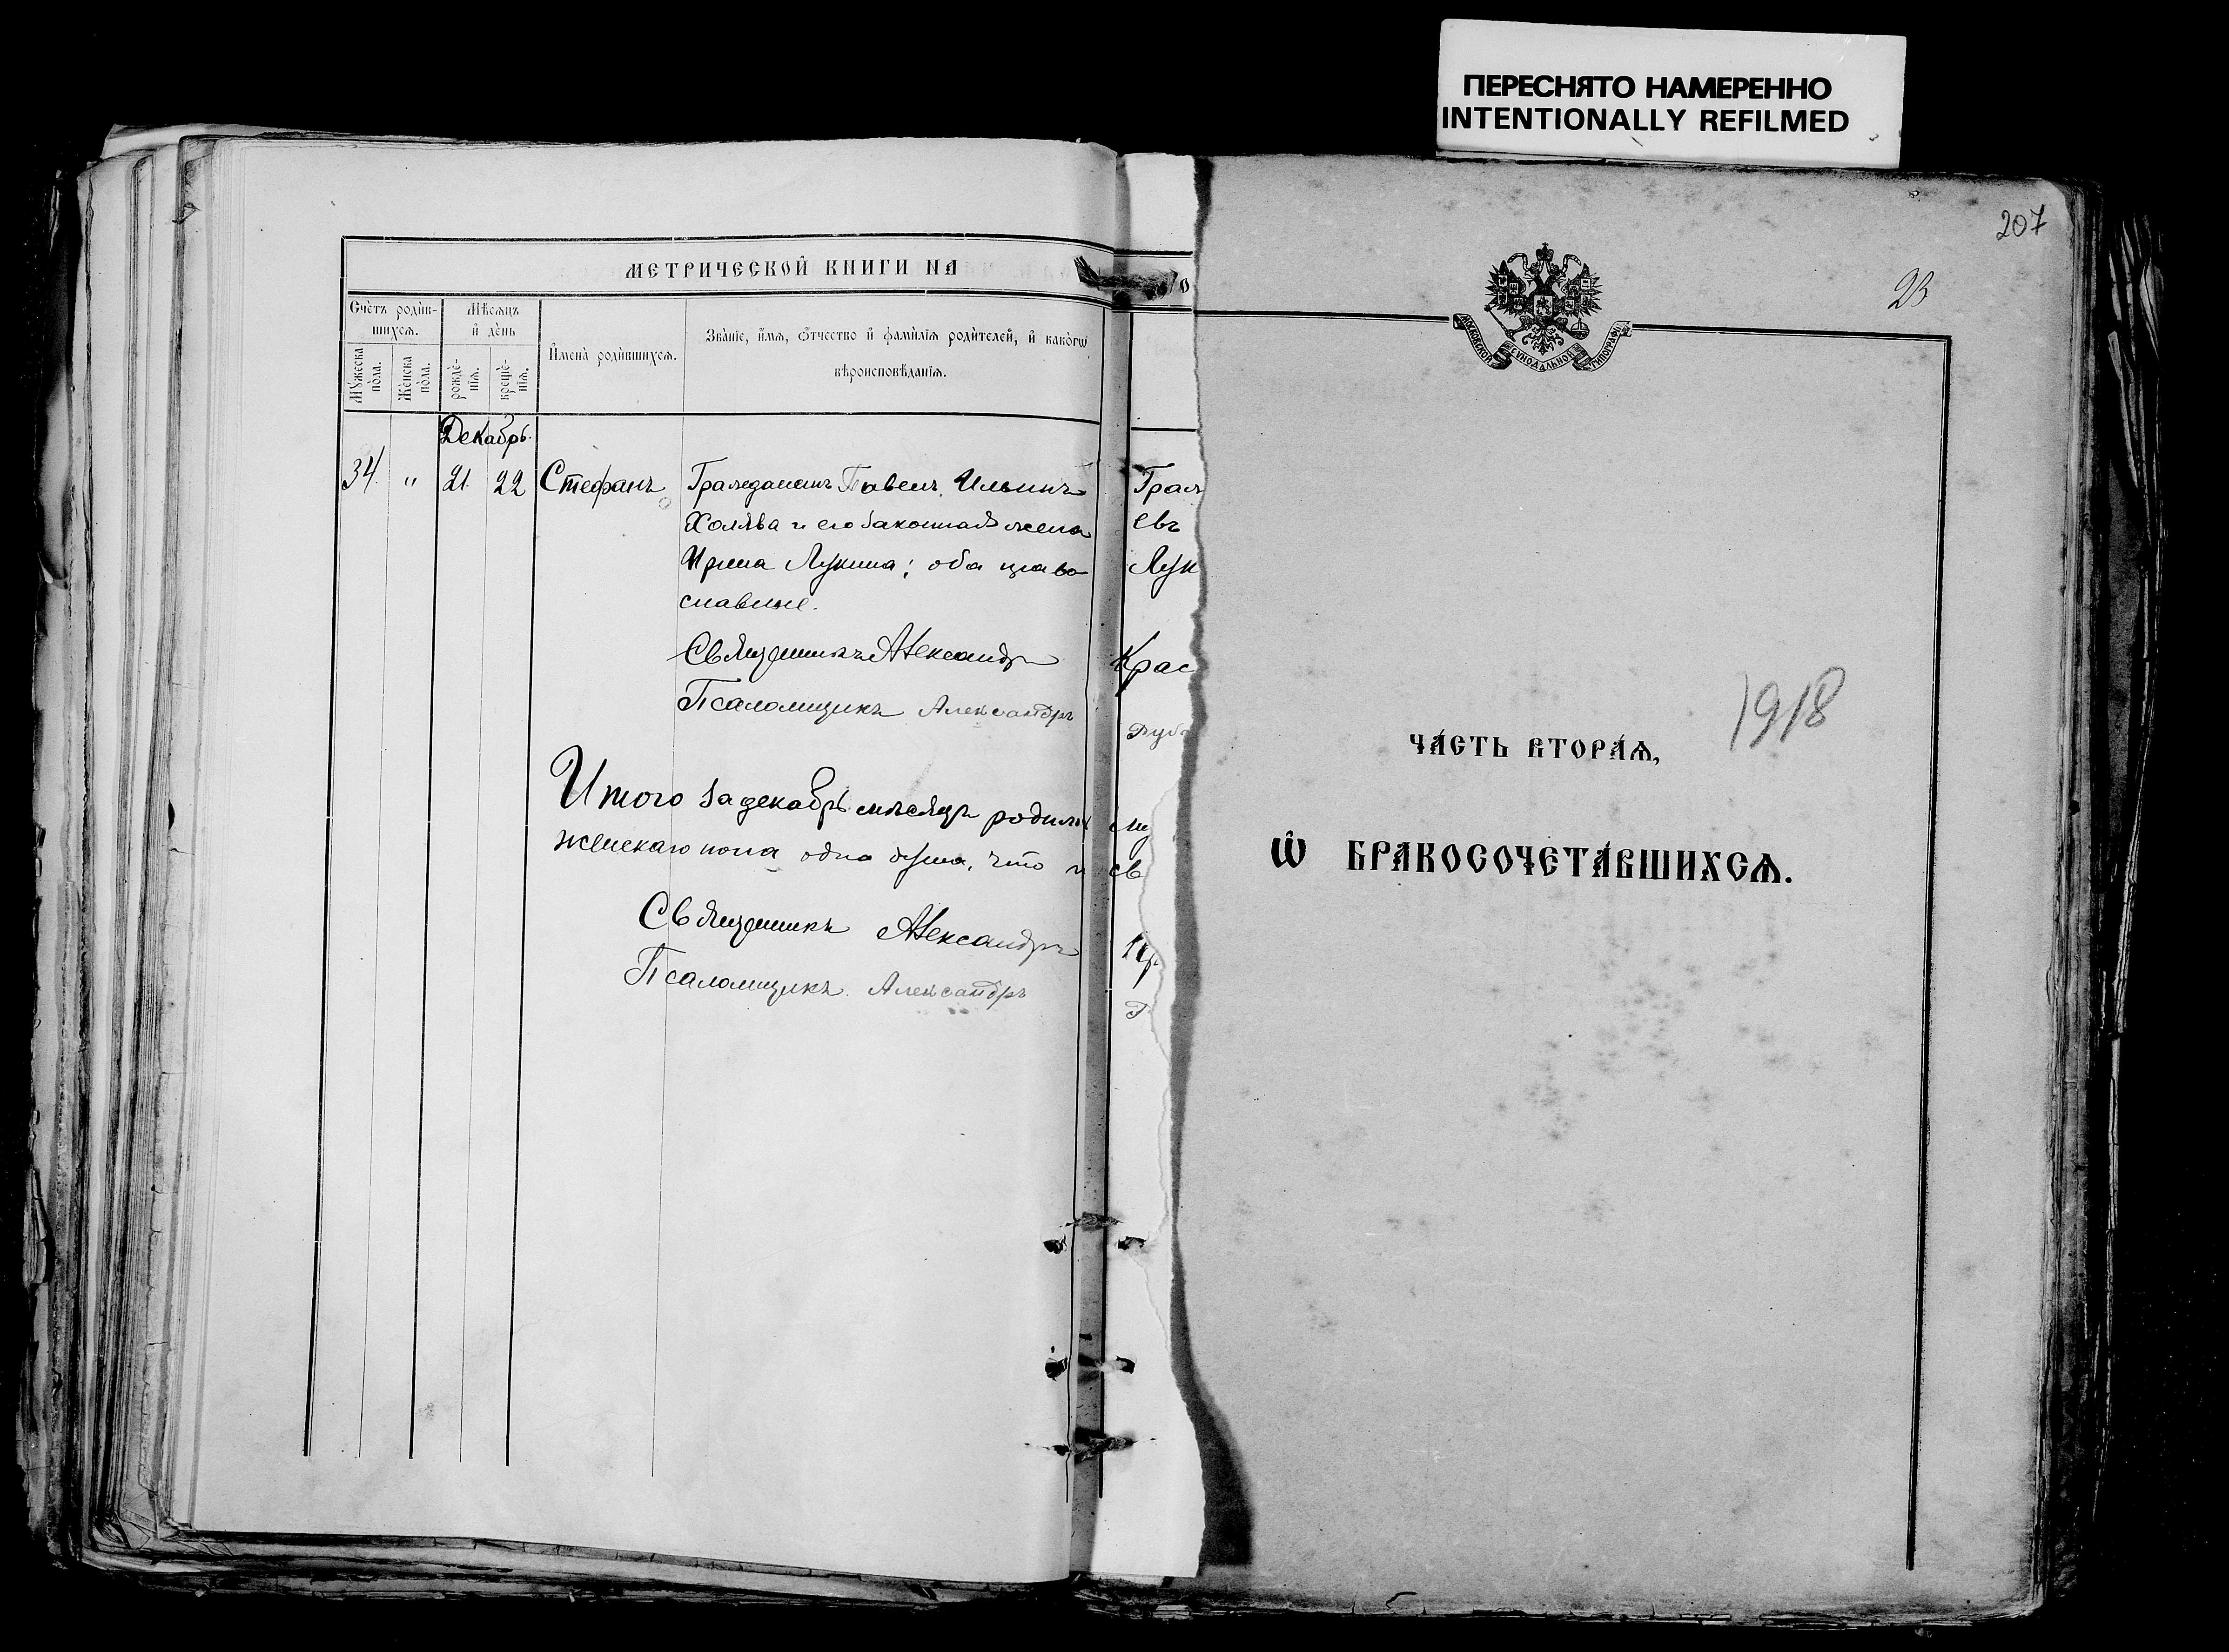 ПЕРЕСНЯТО НАМЕРЕННО
INTENTIONALLY REFILMED
МЕТРИЧЕСКОЙ КНИГИ НА
Счетъ родив-
шихся.
Мужеска
пола.
Женска
пола.
Мѣсяцъ
и день
рожде-
нїя.
креще-
нїя.
Имена родившихся.
Званїе, имя, ѿчество и фамилїя родителей, и какогѡ
вѣроисповѣданїя.
Декабрь.
34. " 21 22 Стефанъ Гражданинъ Павелъ Ильинъ
Холява и его законная жена
Ирина Лукина; оба право
славные.
Священникъ Александръ
Псаломщикъ Александръ
Итого за декабрь мѣсяцъ родилось
женскаго пола одна душа, что и
Священникъ Александръ
Псаломщикъ Александръ
Граж
евъ
Лук
Крас
Дуб
му
св
Кр
207
23
МОСКОВСКОЙ СѴНОДАЛЬНОЙ ТИПОГРАФІИ
1918
ЧАСТЬ ВТОРАЯ,
Ѡ БРАКОСОЧЕТАВШИХСЯ.